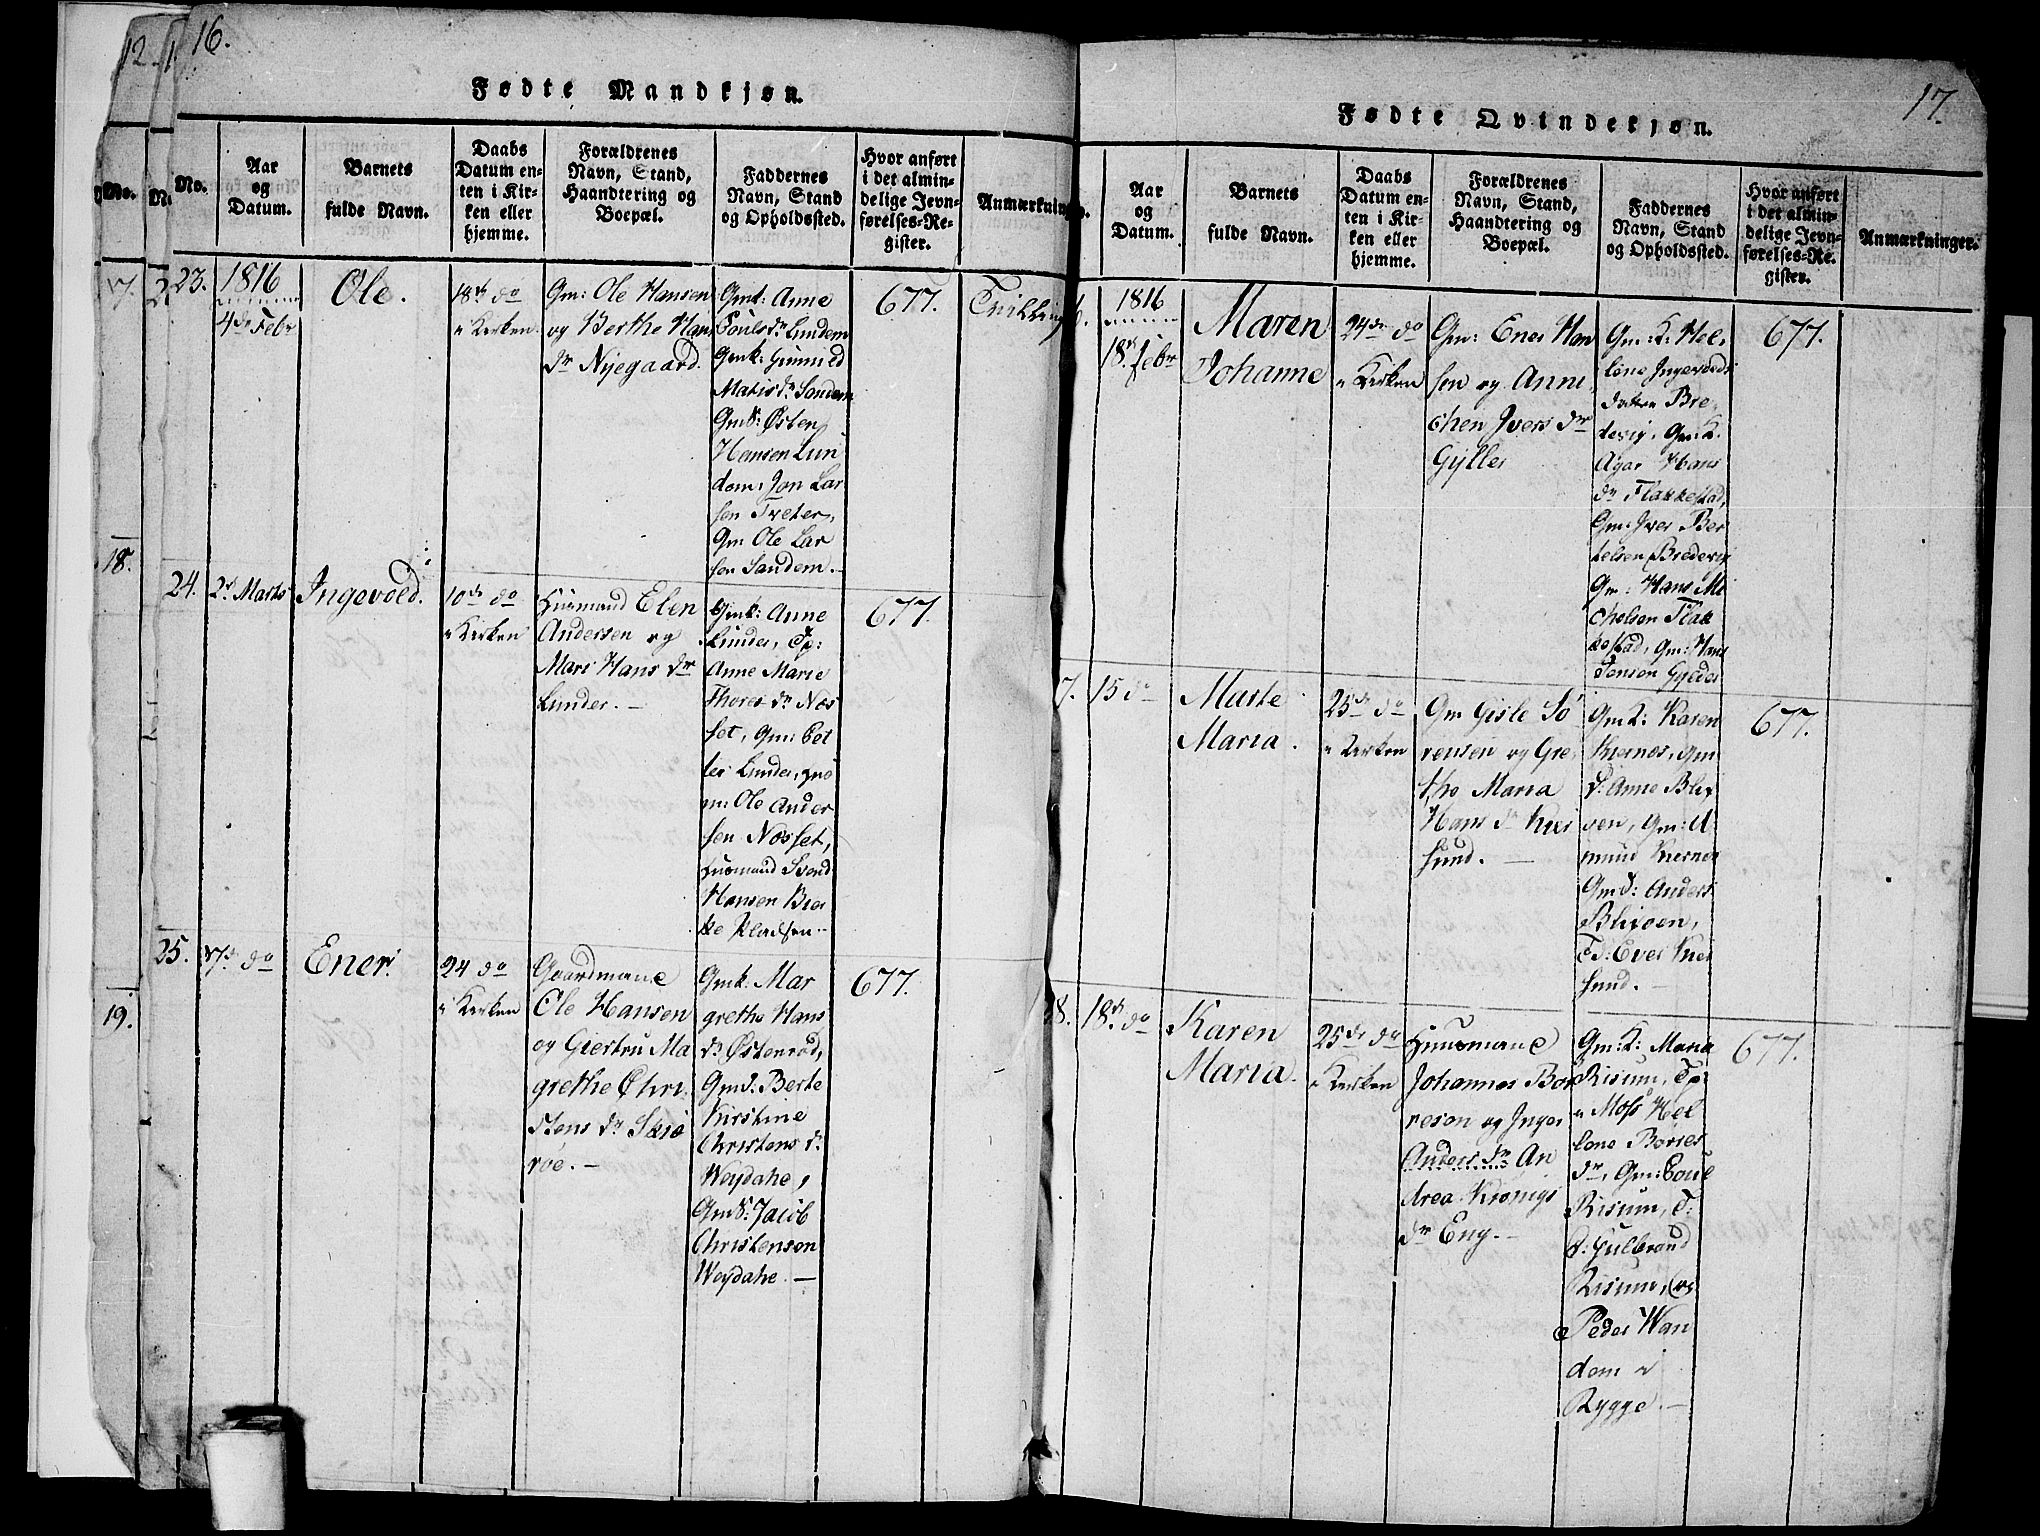 12.
16.
Fødte Mandkjøn.
No.
Aar og Datum.
Barnets fulde Navn.
Daabs Datum enten i Kirken eller hjemme.
Forældrenes Navn, Stand, Haandtering og Boepæl.
Faddernes Navn, Stand og Opholdssted.
Hvor anført i det almindelige Jevnførelses-Register.
Anmærkning
23.
1816
4de Febr
Ole.
18de do
i Kirken.
Gm: Ole Hansen
og Berthe Hans
dr Nyegaard.
Gmk: Anne
Pouls dr Lundem
Gmk: Gunnild
Matis dr Sandem
GmS: Østen
Hansen Lun
dem, Jon Lar
sen Tveter,
Gm Ole Lar
sen Sandem.
677.
Tvilling
18.
24.
2d Marts
Ingevold.
10de do
i Kirken
Huusmand Elen
Andersen og
Mari Hans dr
Lunder. —
Gmk: Anne
Lunder, Tp:
Anne Marie
Thores dr Næs
set, Gm: Pet
ter Lunder,
m: Ole Ander
sen Næsset,
Huusmand Svend
Hansen Bier
ke
677.
25.
7d do
Ener.
24 do
i Kirken
Gaardmand
Ole Hansen
og Giertru Ma
grethe Chri
stens dr Skie
røe. —
Gmk: Mar
grethe Hans
dr Østenrød,
Gmd. Berte
Kirstine
Christens dr
Woydahe,
GmS: Jacob
Christensen
Woydahe. —
677.
19.
17.
Fødte Qvindekjøn.
Aar og Datum.
Barnets fulde Navn.
Daabs Datum enten i Kirken eller hjemme.
Forældrenes Navn, Stand, Haandtering og Boepæl.
Faddernes Navn, Stand og Opholdssted.
Hvor anført i det almindelige Jevnførelses-Register.
Anmærkninger.
1816
18d Febr
Maren
Johanne
24de do
i Kirken
Gm: Ener Han
sen og Anni
chen Ivers dr
Gyller
Gm: K: Hel
lene Ingevolds
datter Bre
devig, Gm: K.
Agar Hans
dr Flakkestad,
Gm: Iver Ber
telsen Bredevig
Gm: Hans Mi
chelsen Flak
kestad, Gm: Hans
Jensen Gylder
677.
7.
15 do
Marte
Maria.
25de do
i Kirken
Gm Gisle Sø
rensen og Gre
the Maria
Hans dr Kier
sund. —
Gmk: Karen
Kiernes, Gm
d: Anne Blix
øen, Gm: A
mund Kiernes
Gmd: Anders
Blixøen,
Td: Ever Kier
sund.
677.
8.
18d do
Karen
Maria.
25de do
i Kirken
Huusmand
Johannes Bor
resen og Inger
Anders dr An
drea Kronigs
dr Eng. —
Gm: K: Maria
Risum, Tp:
i Moss Hel
lene Borres
dr, Gm: Poul
Risum, T:
d: Gulbrand
Risum, og
Peder Wan
dom i
Rygge. —
677.